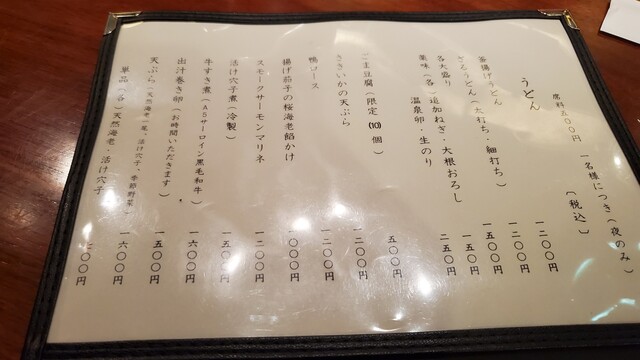 席料五〇〇円 一名様につき(夜のみ)
〔税込〕
うどん
釜揚げうどん 一二〇〇円
ざるうどん(太打ち・細打ち) 一二〇〇円
各大盛り 一五〇〇円
薬味(各)追加ねぎ・大根おろし 一五〇円
温泉卵・生のり 二五〇円
ごま豆腐(限定(10)個) 五〇〇円
さきいかの天ぷら 一二〇〇円
鴨ロース 一二〇〇円
揚げ茄子の桜海老餡かけ 一〇〇〇円
スモークサーモンマリネ 一二〇〇円
活け穴子煮(冷製) 一五〇〇円
牛すき煮(A5サーロイン黒毛和牛) 一六〇〇円
出汁巻き卵(お時間いただきます) 一五〇〇円
天ぷら(天然海老二尾、活け穴子、季節野菜) 一六〇〇円
単品(各)天然海老・活け穴子 七〇〇円